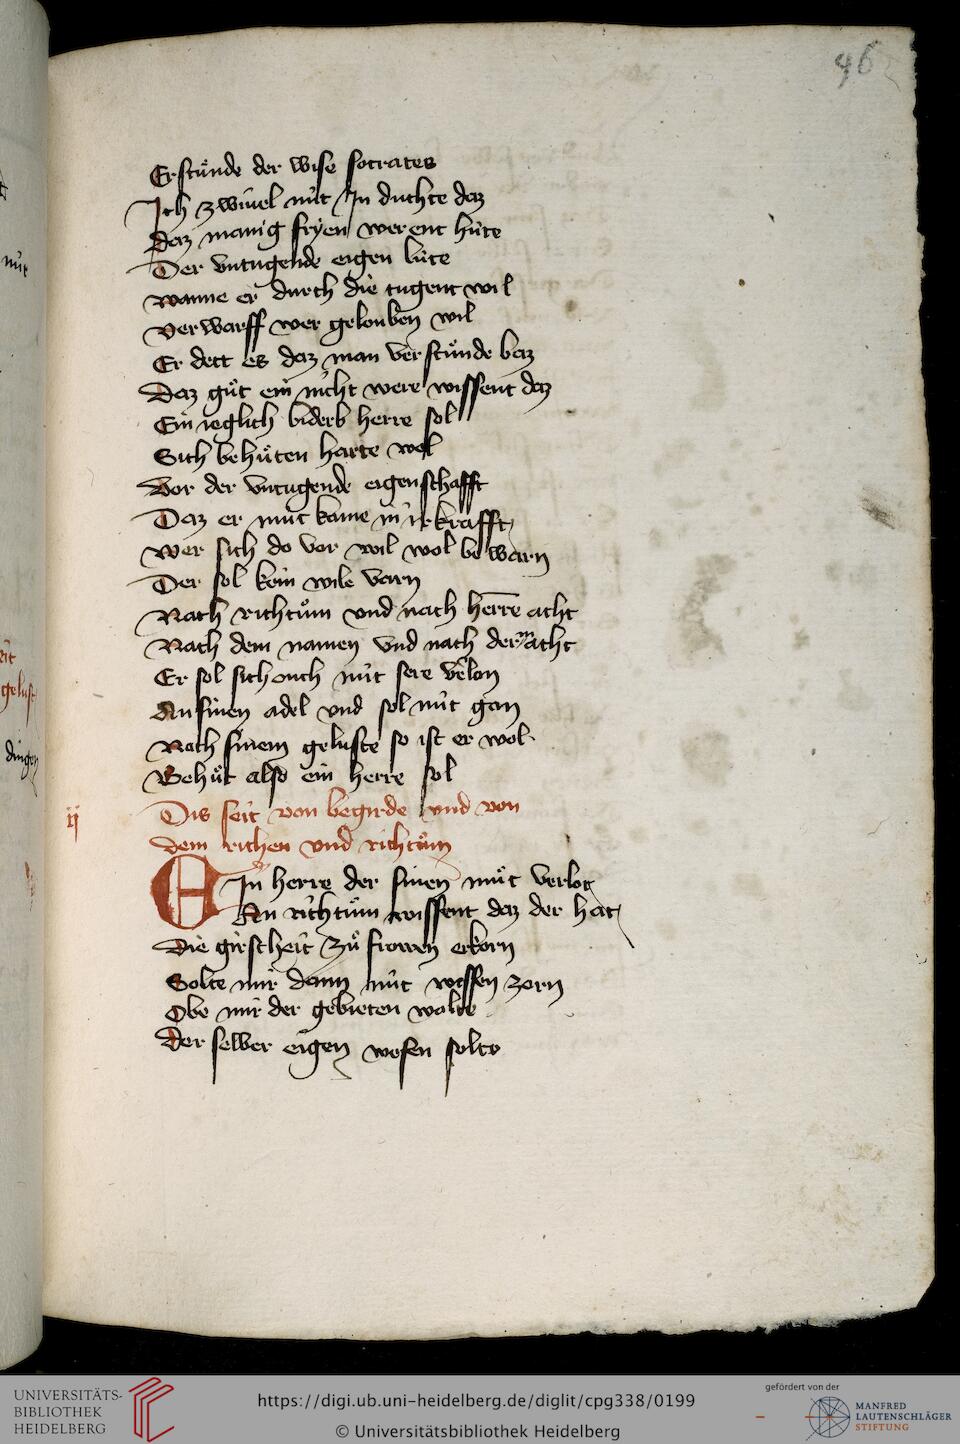 96
Erstuͦnde der wise socrates
Ich zwiuel nuͥt In duchte daz
Daz manig fryen werent huͥte
Der vntugende eigen luͥte
wanne er durch die tugent wil
Verwarff wer gelouben wil
Er dett es daz man verstuͦnde baz
Daz guͦt ein nicht were wissent daz
Ein ieglich biderb herre sol
Sich behuͦten harte wol
Vor der vntugende eigenschafft
Daz er nuͥt kome in ir krafft
wer sich do vor wil wol bewarn
Der sol kein wile varn
Nach richtuͦm vnd nach herre acht
Nach dem namen vnd nach der macht
Er sol sich ouch nuͥt sere verlon
An sinen adel vnd sol nuͥt gan
Nach sinem geluste so ist er wol
Behuͦt also ein herre sol
ij
Dis seit von begirde vnd von
dem richen vnd richtuͦm
EIn herre der sinen muͦt verlot
An richtuͦm wissent daz der hat
Die girscheit zuͦ frowen erkorn
Solte mir dann nuͥt wessen zorn
Obe mir der gebieten wolte
Der selber eigen wesen solte
nuͥt
gelust
dingen
UNIVERSITÄTS-
BIBLIOTHEK
HEIDELBERG
https://digi.ub.uni-heidelberg.de/diglit/cpg338/0199
© Universitätsbibliothek Heidelberg
gefördert von der
MANFRED
LAUTENSCHLÄGER
STIFTUNG